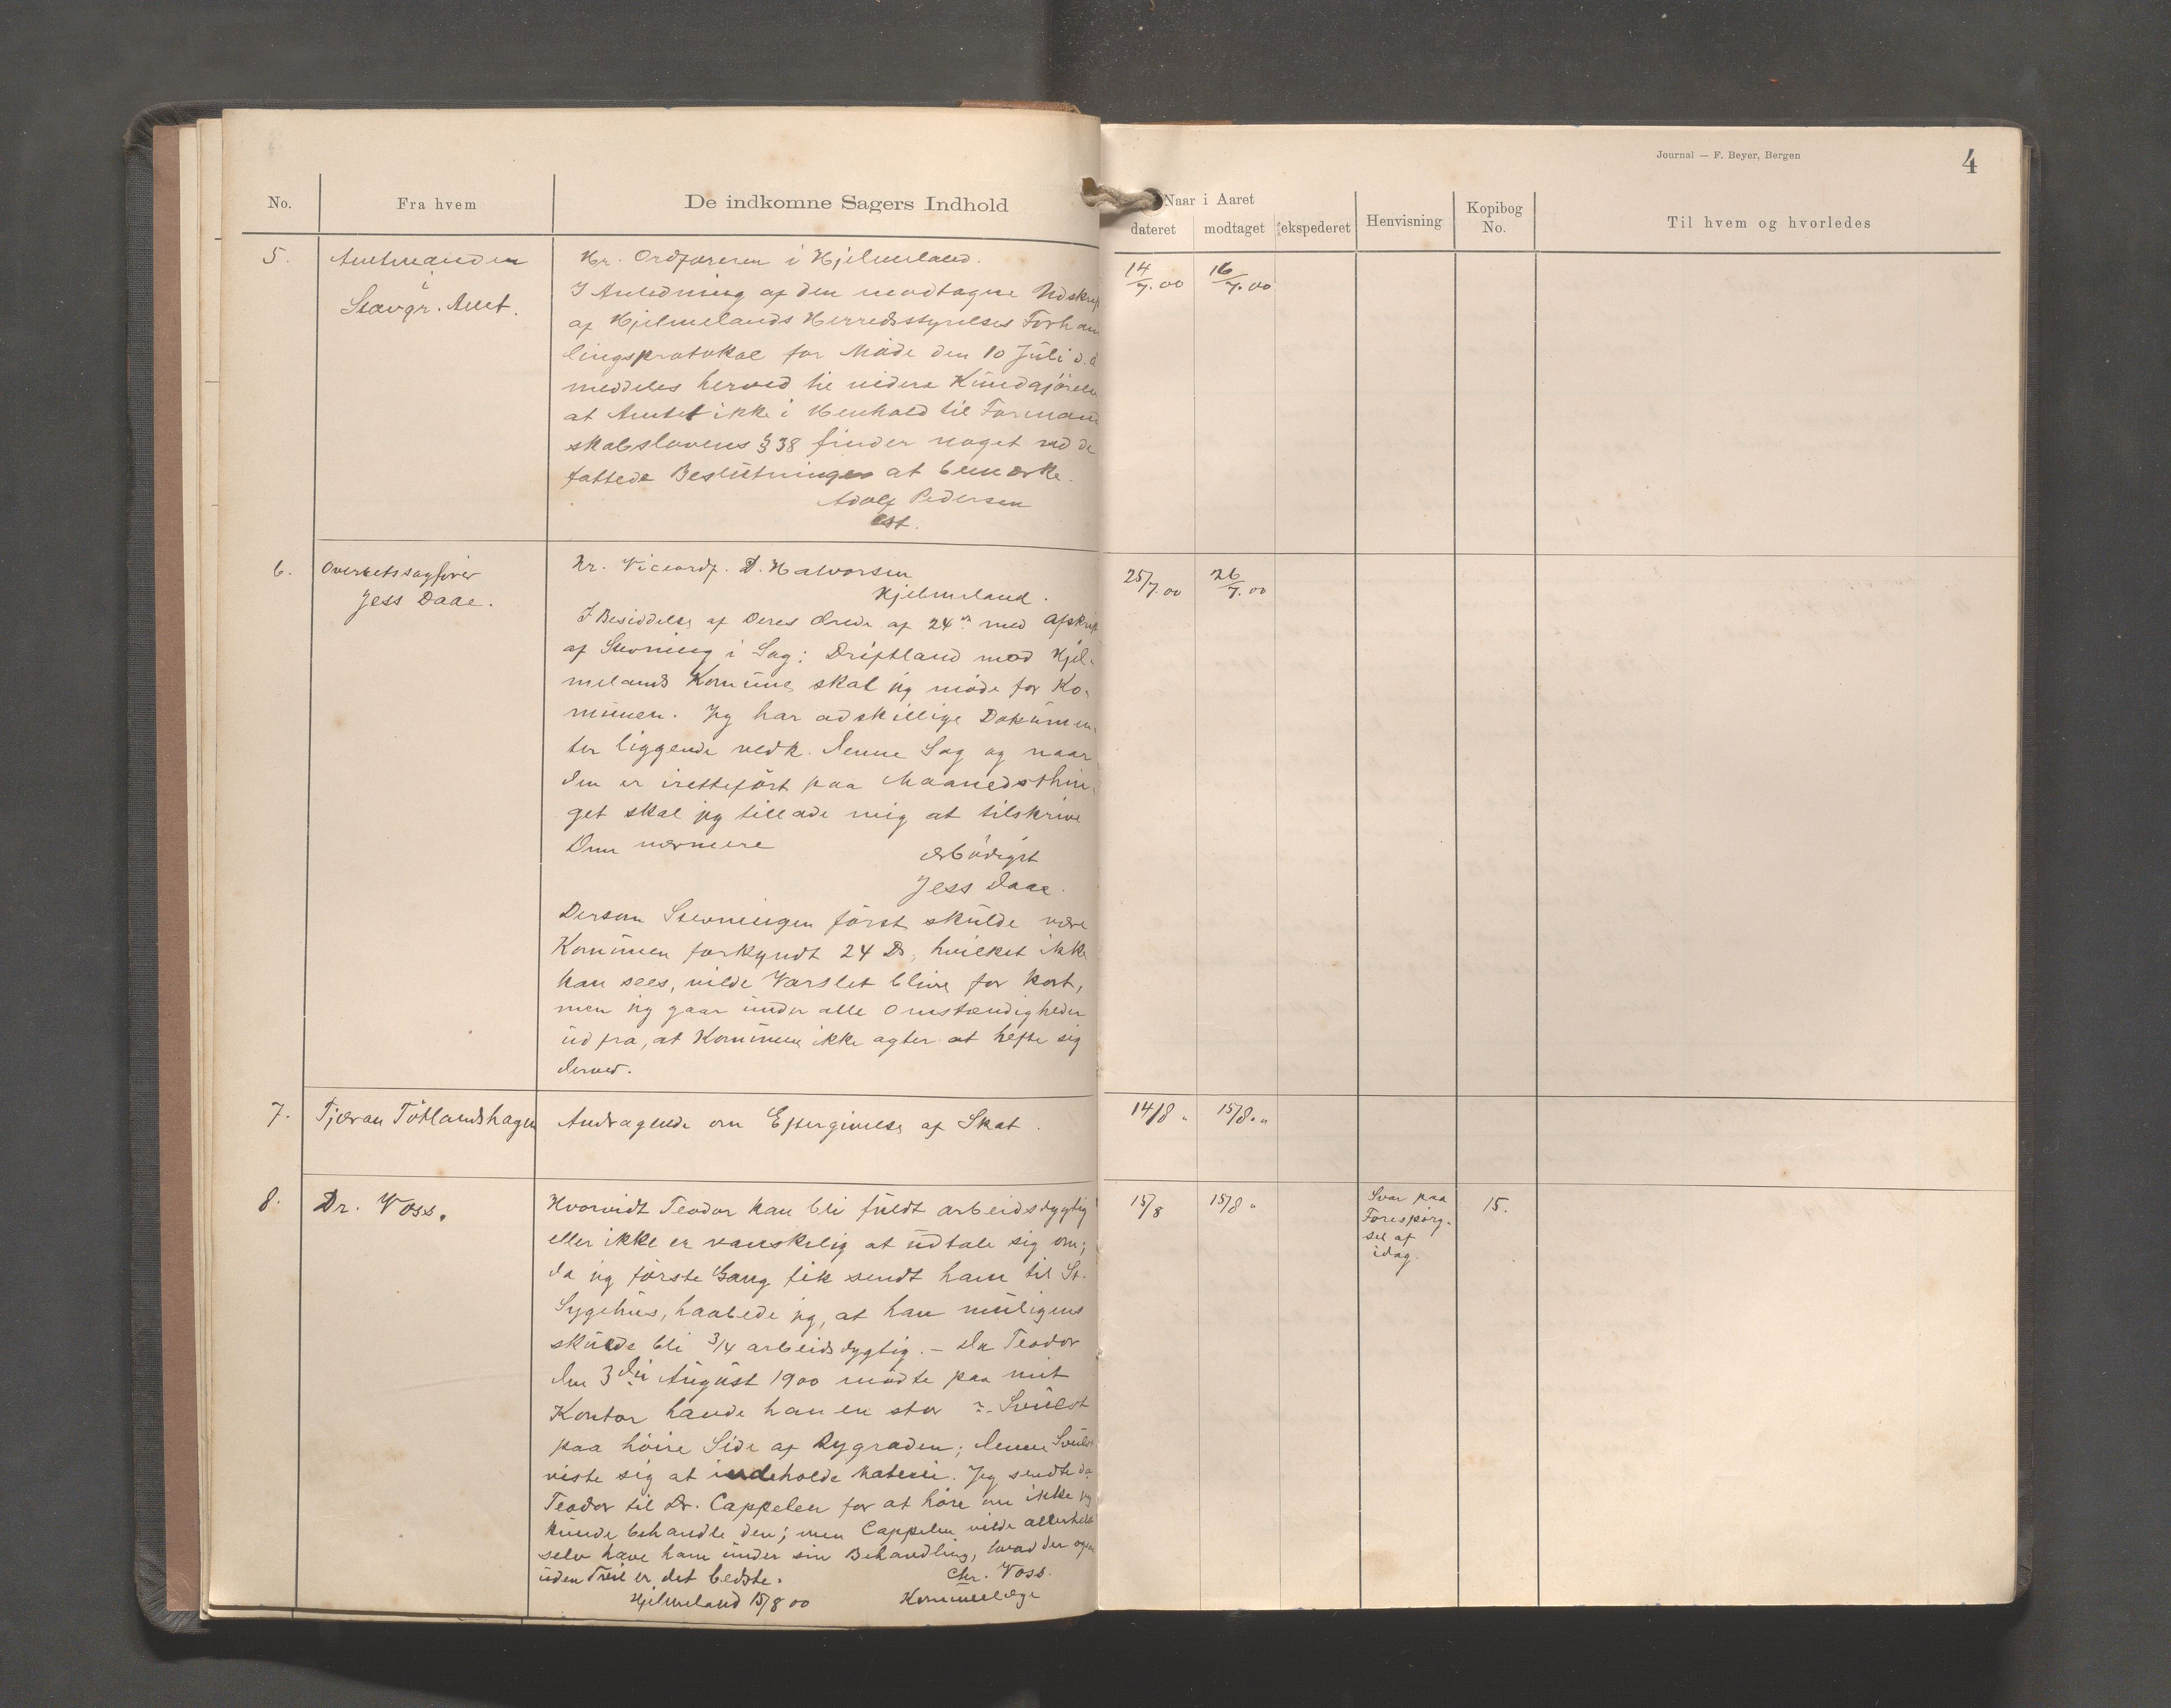 Journal — F. Beyer, Bergen
4
No.
Fra hvem
De indkomne Sagers Indhold
Naar i Aaret
dateret
modtaget
ekspederet
Henvisning
Kopibog
No.
Til hvem og hvorledes
5.
Amtmanden
i
Stavgr. Amt.
Hr. Ordføreren i Hjelmeland.
I Anledning af den modtagne Udskrift
af Hjelmelands Herredsstyrelses Forhan
lingsprotokol for Møde den 10 Juli d. A
meddeles herved til videre Kundgjørelse
at Amtet ikke i Henhold til Formand
skabslovens § 38 finder noget ved de
fattede Beslutninger at bemærke.
Adolf Pedersen
cst.
14/7.00
16/7.00
6.
Overretssagfører
Jess Daae.
Hr. Viceordf. D. Halvorsen
Hjelmeland.
I Besiddelse af Deres ærede af 24de med Afskrift
af Stevning i Sag: Driftland mod Hjel-
melands Komune skal jeg møde for Ko-
munen. Jeg har adskillige Dokumen-
ter liggende vedk. denne Sag og naar
den er iretteført paa Maanedsthin-
get skal jeg tillade mig at tilskrive
Dem nærmere
ærbødigst
Jess Daae.
Dersom Stevningen først skulde være
Komunen forkyndt 24 Ds, hvilket ikke
kan sees, vilde Varslet blive for kort,
men jeg gaar under alle Omstændigheder
ud fra, at Komunen ikke agter at hefte sig
derved.
25/7.00
26/7.00
7.
Tjeran Tøtlandshagen
Andragende om Eftergivelse af Skat.
14/8 "
15/8. "
8.
Dr. Voss.
Hvorvidt Teodor kan bli fuldt arbeidsdygtig
eller ikke er vanskelig at udtale sig om;
da jeg første Gang fik sendt ham til St.
Sygehus, haabede jeg, at han muligens
skulde bli 3/4 arbeidsdygtig. — Da Teodor
den 3die August 1900 mødte paa mit
Kontor havde han en stor Svulst
paa høire Side af Rygraden; denne Svulst
viste sig at indeholde Materie. Jeg sendte da
Teodor til Dr. Cappelen for at høre om ikke jeg
kunde behandle den; men Cappelen vilde allerhelst
selv have ham under sin Behandling, hvad der ogsaa
uden Tvil er det bedste.
Chr. Voss.
Hjelmeland 15/8 00
Komunelæge
15/8
15/8 "
Svar paa
Forespørg-
sel af
idag.
15.